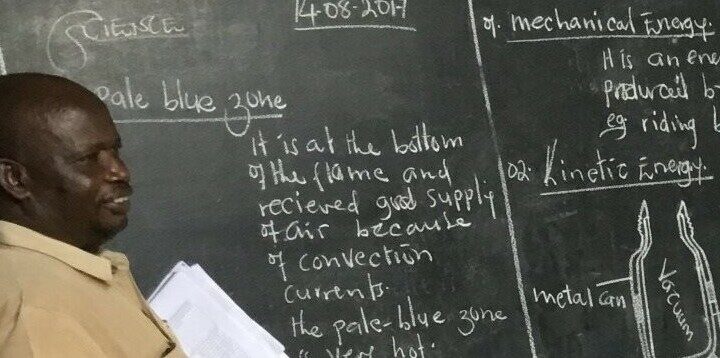 SCIENSCE
14-08-2017
pale blue zone
It is at the bottom
of the flame and
recieved good supply
of air because
of convection
currents.
the pale-blue zone
is very hot.
01. mechanical Energy.
It is an ene
produced b
eg riding b
02. Kinetic Energy.
metal can
Vacuum